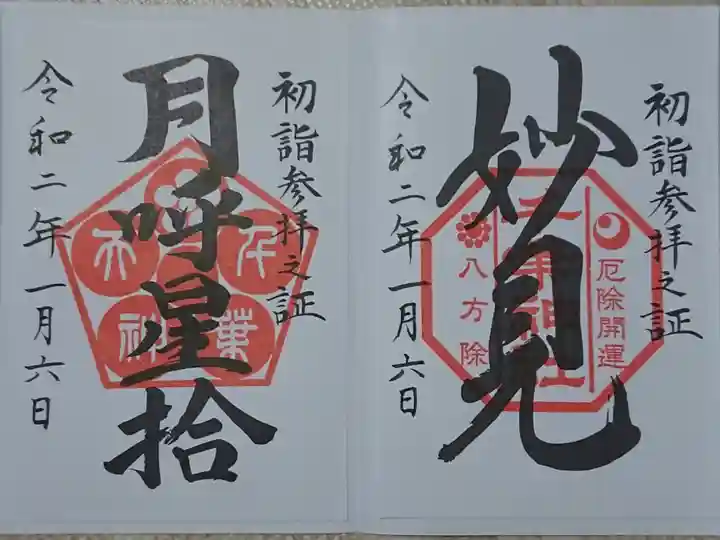 初詣参拝之証
妙見
厄除開運
千葉神社
八方除
令和二年一月六日
初詣参拝之証
月呼星拾
千葉神社
令和二年一月六日